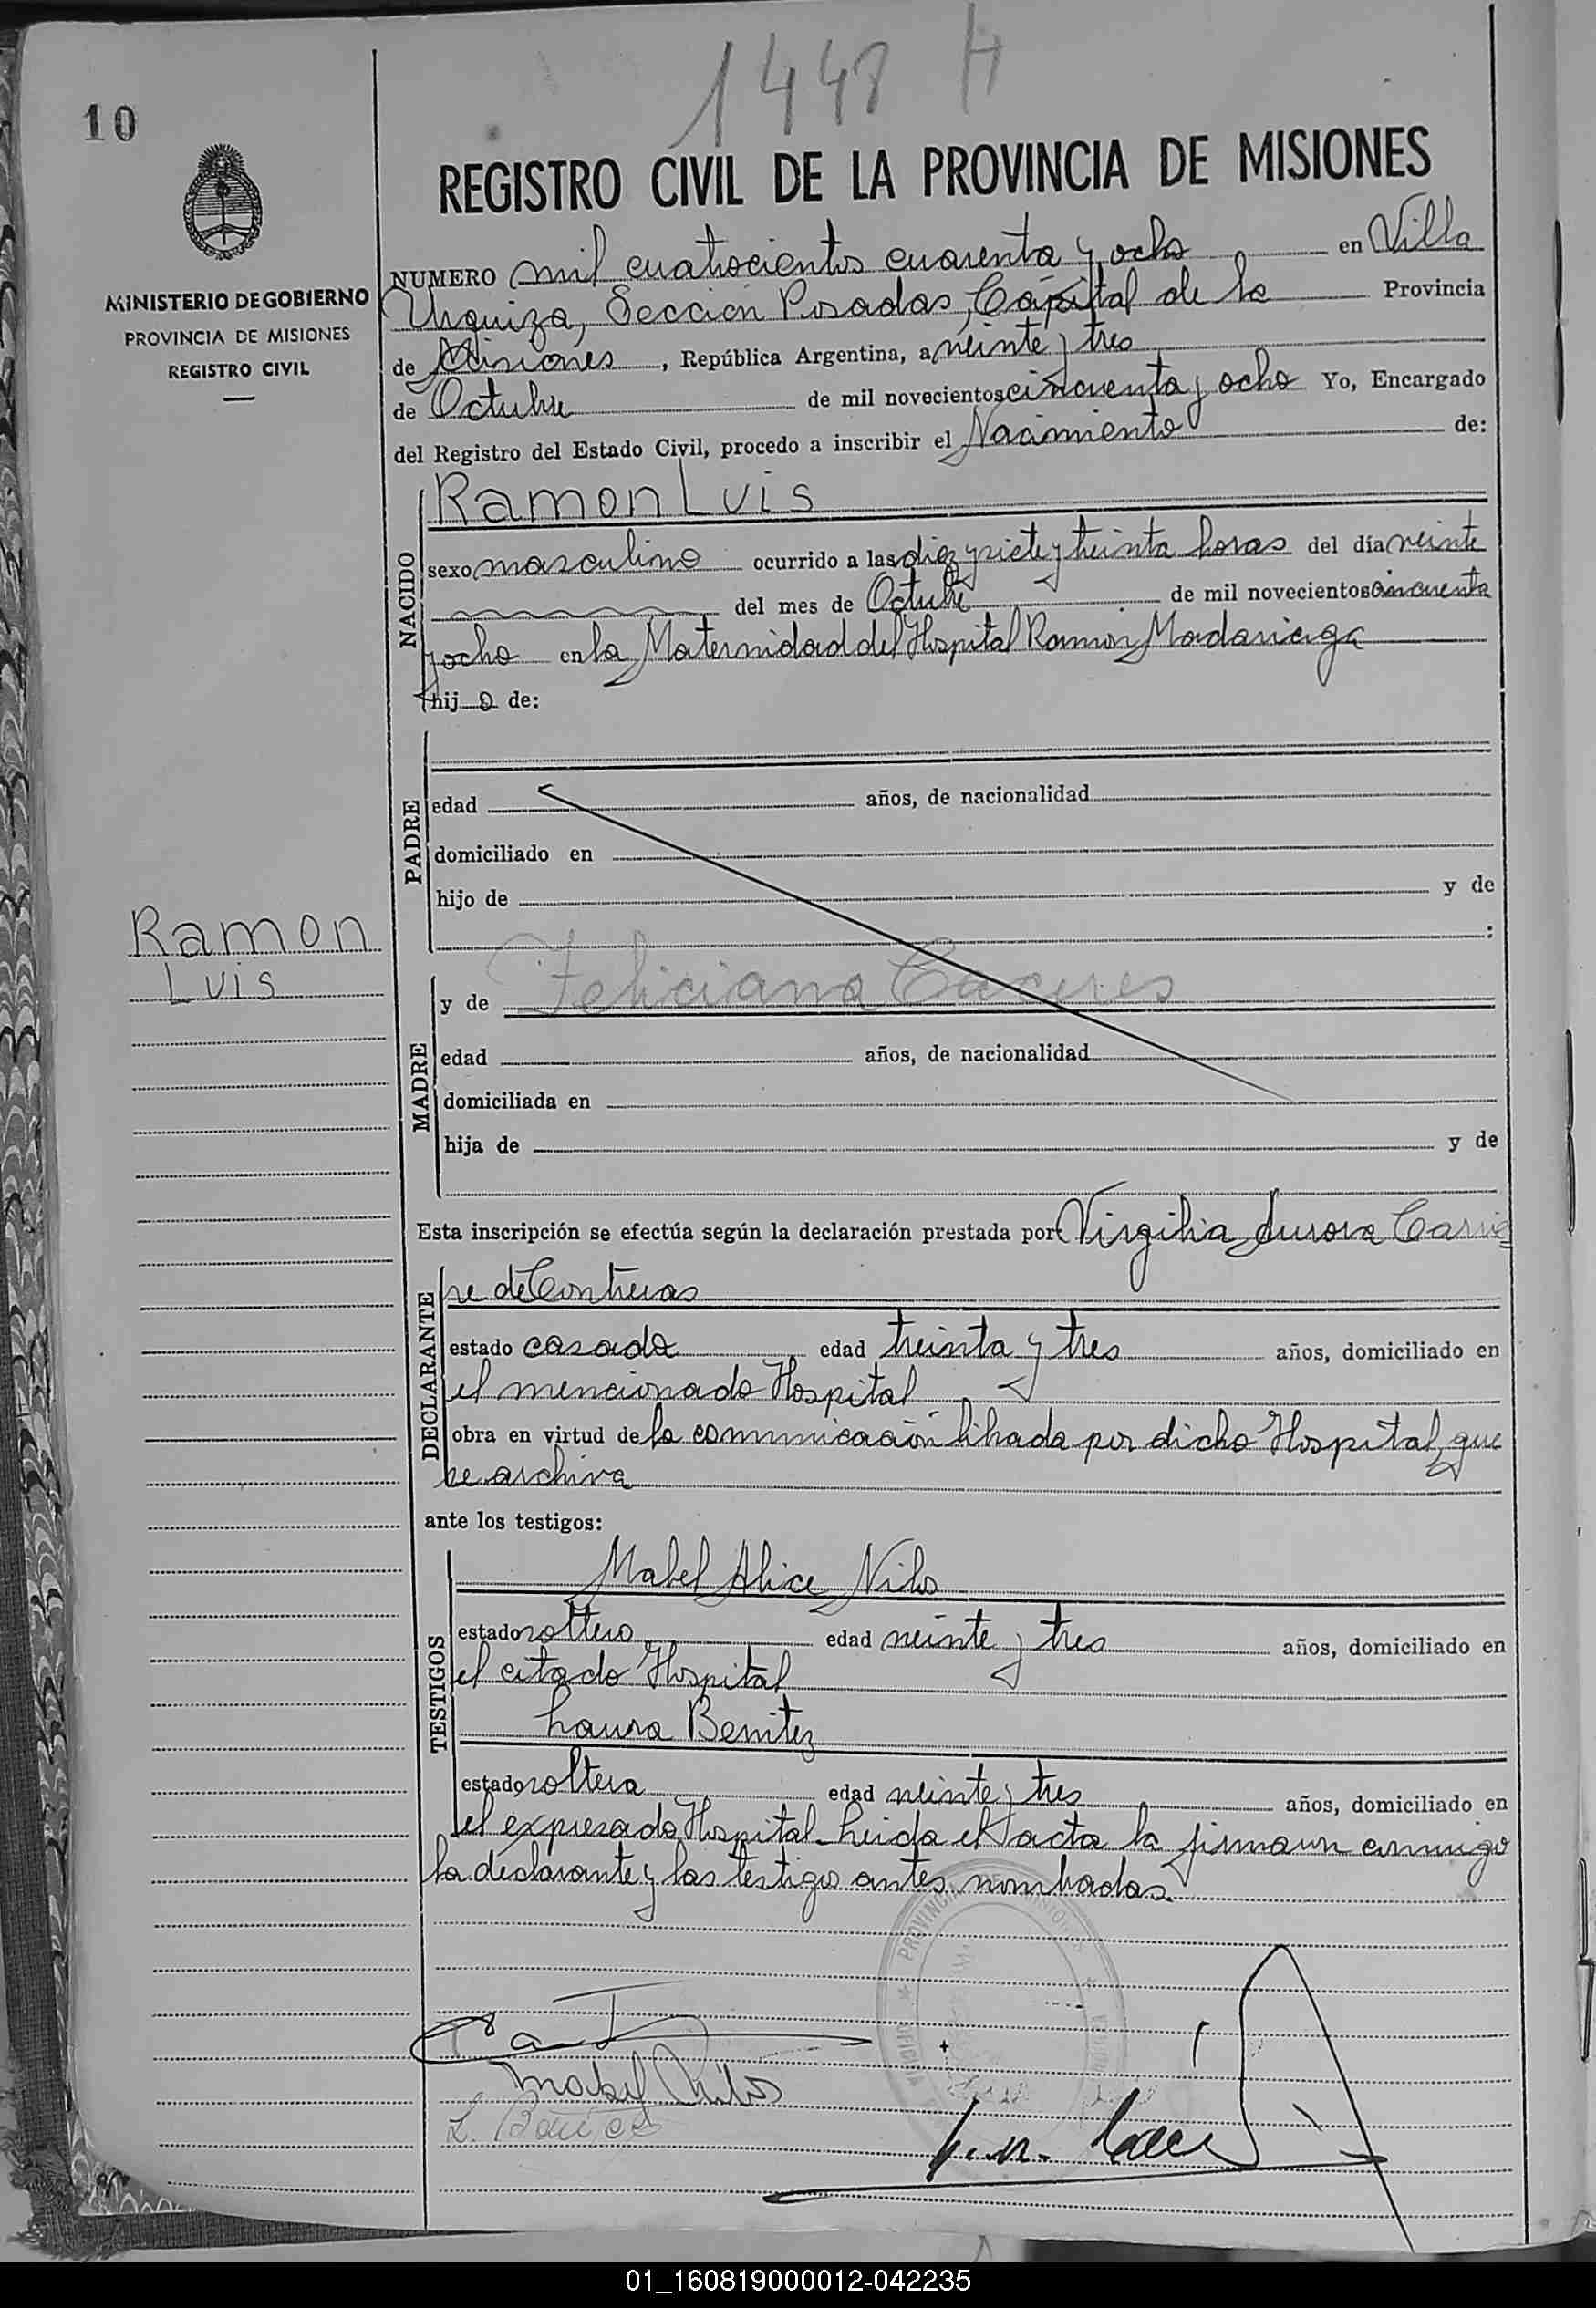 1448 H
10
REGISTRO CIVIL DE LA PROVINCIA DE MISIONES
MINISTERIO DE GOBIERNO
PROVINCIA DE MISIONES
REGISTRO CIVIL
NUMERO mil cuatrocientos cuarenta y ocho en Villa
Urquiza, Sección Posadas, Capital de la Provincia
de Misiones, República Argentina, a veinte y tres
de Octubre de mil novecientos cincuenta y ocho Yo, Encargado
del Registro del Estado Civil, procedo a inscribir el Nacimiento de:
NACIDO
Ramon Luis
sexo masculino ocurrido a las diez y siete y treinta horas del día veinte
del mes de Octubre de mil novecientos cincuenta
y ocho en la Maternidad del Hospital Ramón Madariaga
hij o de:
PADRE
edad años, de nacionalidad
domiciliado en
hijo de y de
:
Ramon
Luis
MADRE
y de Feliciana Caceres
edad años, de nacionalidad
domiciliada en
hija de y de
Esta inscripción se efectúa según la declaración prestada por Virgilia Aurora
DECLARANTE
de Contreras
estado casada edad treinta y tres años, domiciliado en
el mencionado Hospital
obra en virtud de la comunicación librada por dicho Hospital, que
se archiva
ante los testigos:
TESTIGOS
Mabel Alice Nilo
estado soltera edad veinte y tres años, domiciliado en
el citado Hospital
Laura Benitez
estado soltera edad veinte y tres años, domiciliado en
el expresado Hospital. Leida el acta la firmaron conmigo
la declarante y las testigos antes nombradas.
PROVINCIA DE MISIONES
01_160819000012-042235